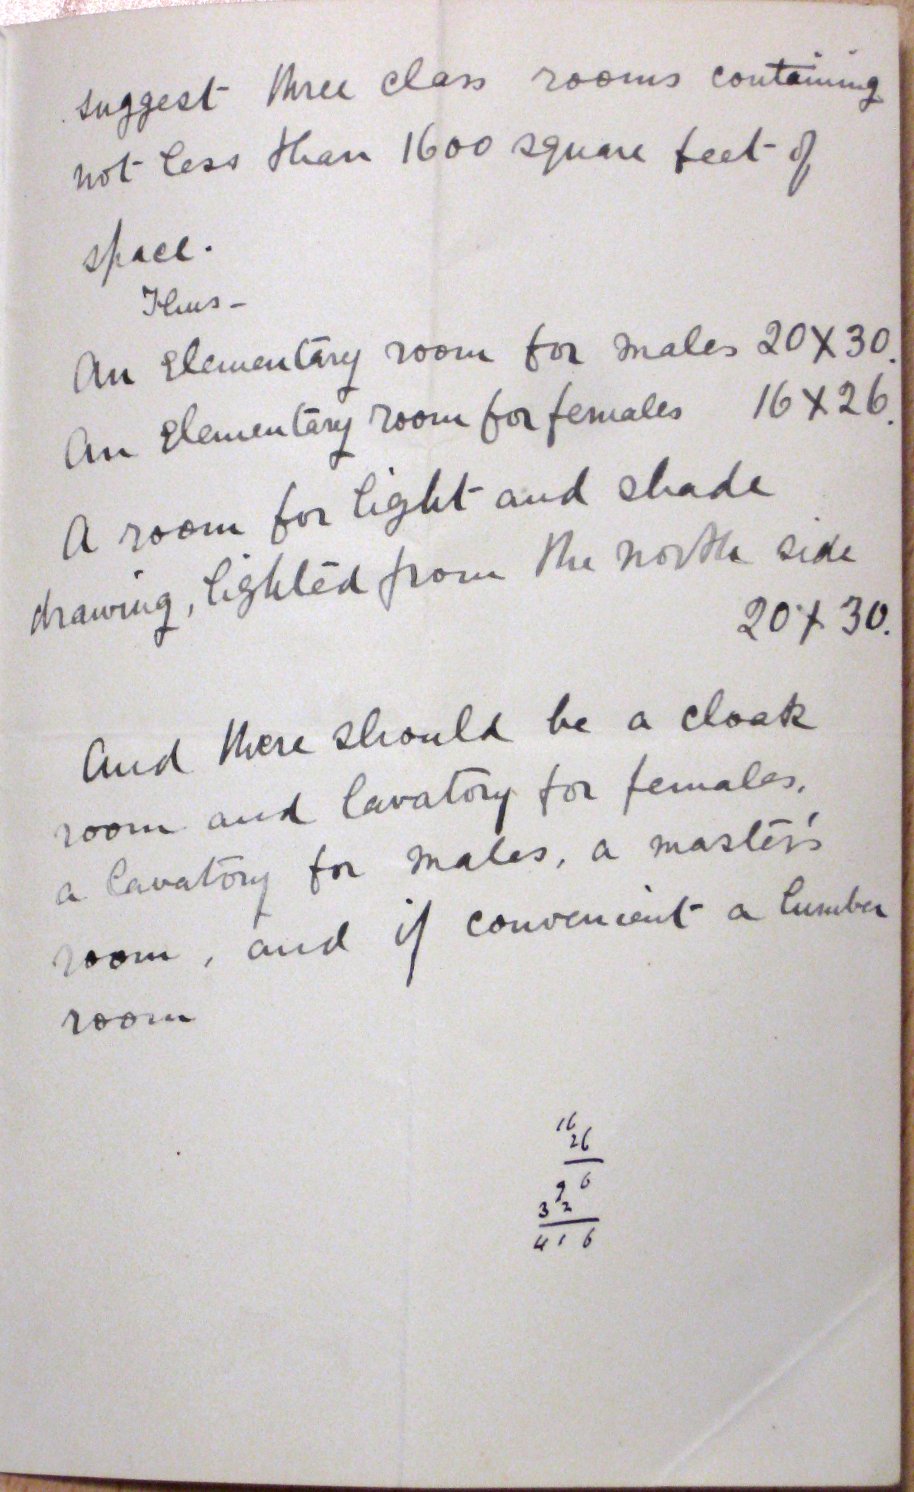 suggest three class rooms containing
not less than 1600 square feet of
space.
Thus -
An Elementary room for males 20 X 30.
An Elementary room for females 16 X 26.
A room for light and shade
drawing, lighted from the north side
20 X 30.
And there should be a cloak
room and lavatory for females,
a lavatory for males, a master's
room, and if convenient a lumber
room
16
26
9 6
3 2
4 1 6